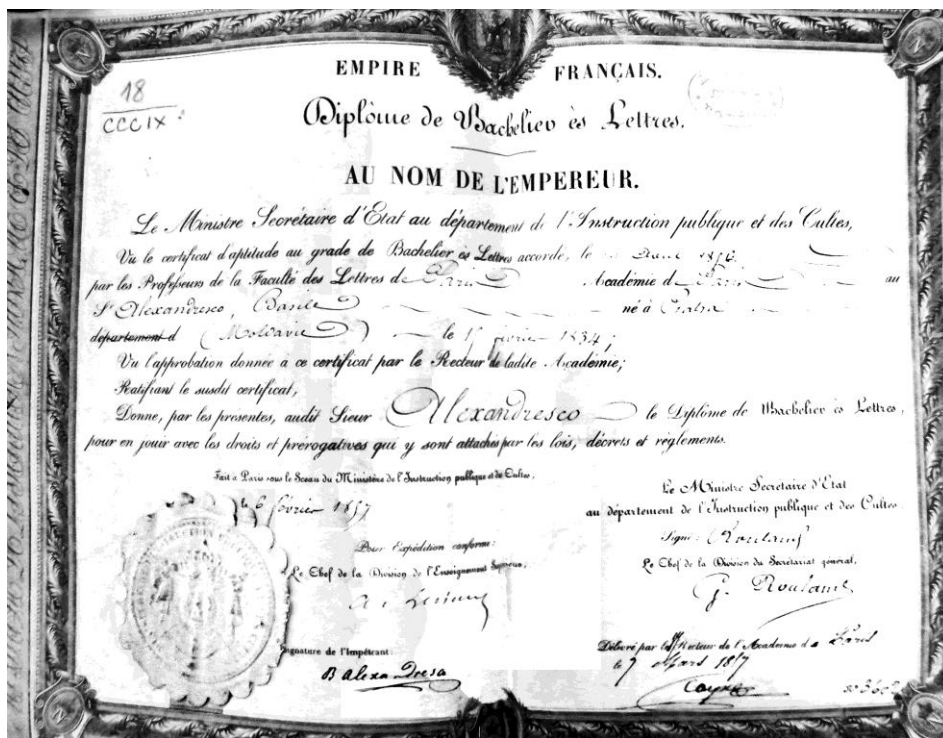 18
CCCIX
EMPIRE FRANÇAIS.
Diplôme de Bachelier ès Lettres.
AU NOM DE L'EMPEREUR.
Le Ministre Secrétaire d'État au département de l'Instruction publique et des Cultes,
Vu le certificat d'aptitude au grade de Bachelier ès Lettres accordé, le 1856
par les Professeurs de la Faculté des Lettres de Paris Académie d Paris au
Sr Alexandresco, Basile né à
département d (Moldavie) le février 1834;
Vu l'approbation donnée à ce certificat par le Recteur de ladite Académie;
Ratifiant le susdit certificat,
Donne, par les présentes, audit Sieur Alexandresco le Diplôme de Bachelier ès Lettres,
pour en jouir avec les droits et prérogatives qui y sont attachés par les lois, décrets et règlements.
Fait à Paris sous le Sceau du Ministère de l'Instruction publique et des Cultes,
le 6 février 1857
Pour Expédition conforme:
Le Chef de la Division de l'Enseignement Supérieur,
Signature de l'Impétrant:
B Alexandresco
Le Ministre Secrétaire d'État
au département de l'Instruction publique et des Cultes
Signé: Rouland
Le Chef de la Division du Secrétariat général,
G. Rouland
Délivré par le Recteur de l'Académie d Paris
le 7 Mars 1857